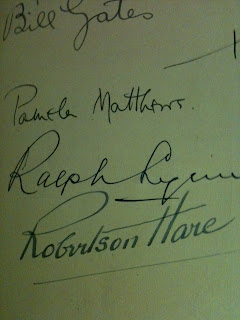 Bill Gates
Pamela Matthews.
Ralph Lynn
Robertson Hare